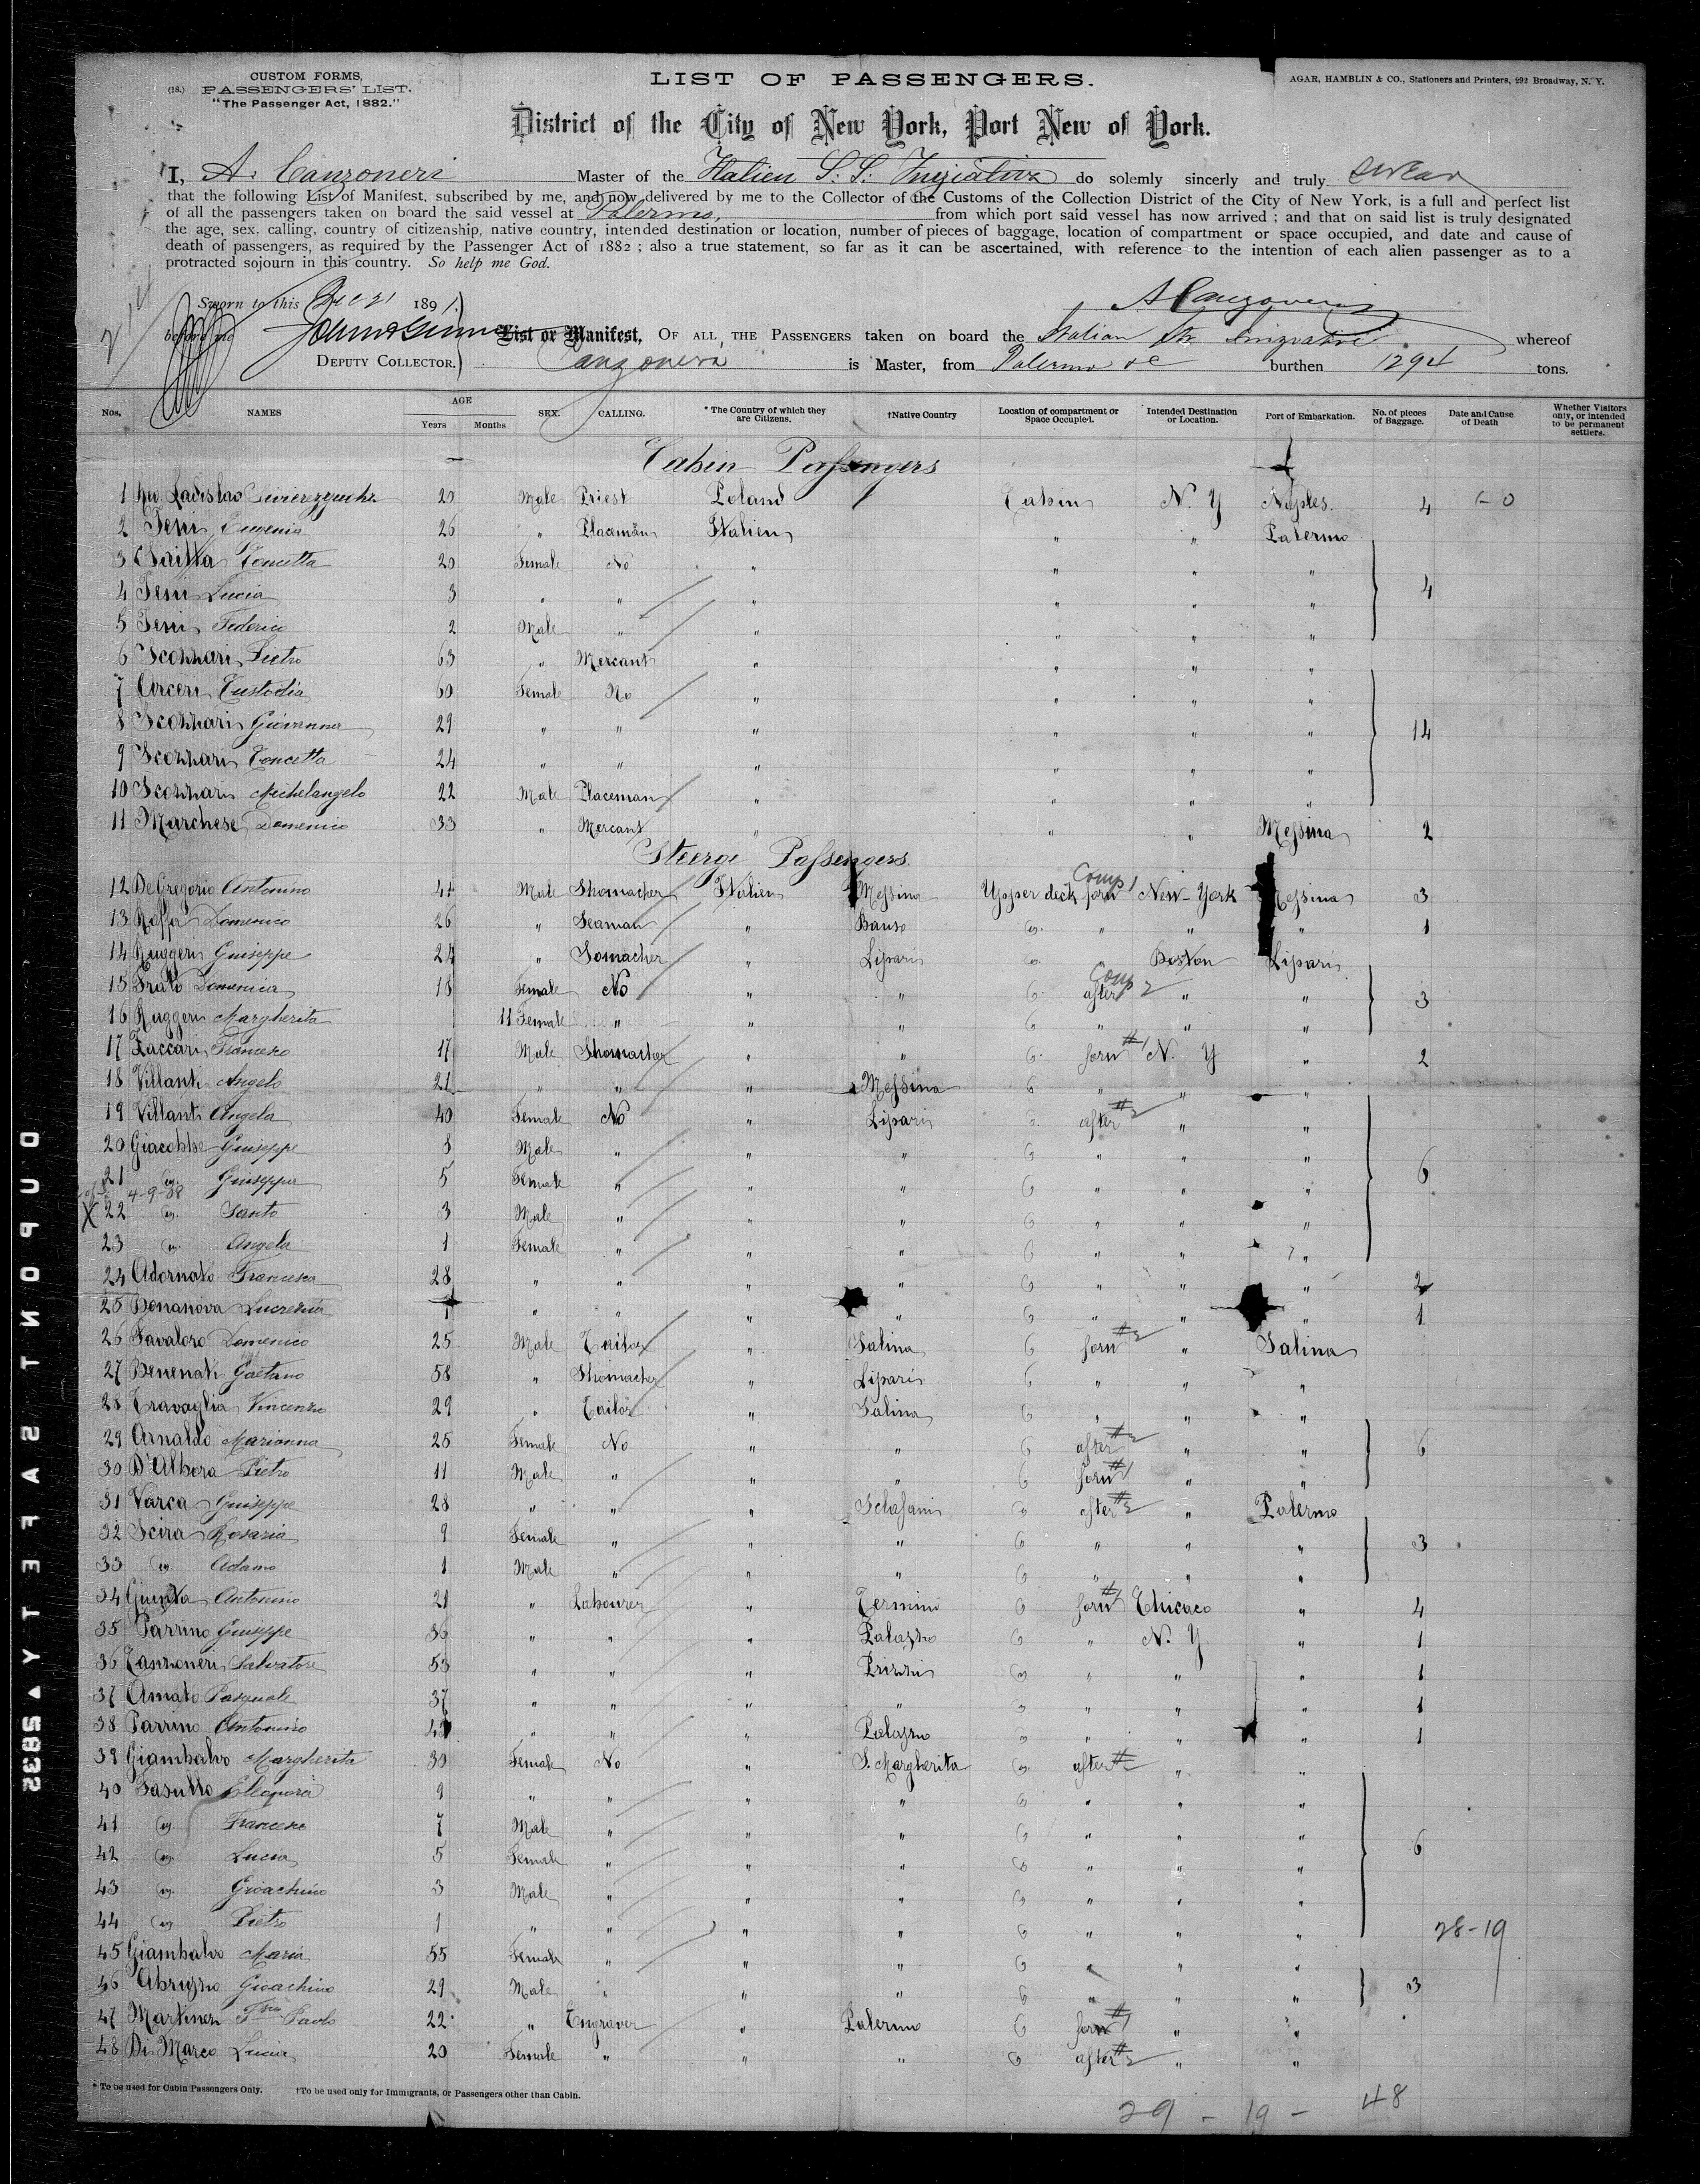 CUSTOM FORMS,
(18.) PASSENGERS' LIST.
"The Passenger Act, 1882."
LIST OF PASSENGERS.
AGAR, HAMBLIN & CO., Stationers and Printers, 292 Broadway, N. Y.
District of the City of New York, Port New of York.
I, A. Canzoneri Master of the Italien S. S. Iniziativa do solemnly sincerely and truly swear
that the following List of Manifest, subscribed by me, and now delivered by me to the Collector of the Customs of the Collection District of the City of New York, is a full and perfect list
of all the passengers taken on board the said vessel at Palermo, from which port said vessel has now arrived ; and that on said list is truly designated
the age, sex, calling, country of citizenship, native country, intended destination or location, number of pieces of baggage, location of compartment or space occupied, and date and cause of
death of passengers, as required by the Passenger Act of 1882 ; also a true statement, so far as it can be ascertained, with reference to the intention of each alien passenger as to a
protracted sojourn in this country. So help me God.
Sworn to this Dec 21 1891 A Canzoneri
before me List or Manifest, OF ALL THE PASSENGERS taken on board the Italian Str Iniziativa whereof
DEPUTY COLLECTOR. Canzoneri is Master, from Palermo &c burthen 1294 tons.
Nos. NAMES AGE Years Months SEX. CALLING. * The Country of which they are Citizens. †Native Country Location of compartment or Space Occupied. Intended Destination or Location. Port of Embarkation. No. of pieces of Baggage. Date and Cause of Death Whether Visitors only, or intended to be permanent settlers.
Cabin Passengers
1 Rev. Ladislao 20 Male Priest Poland Cabin N. Y Naples. 4
2 Jeni Eugenio 26 " Placeman Italien " " Palermo
3 Saitta Concetta 20 Female No " " " "
4 Jeni Lucia 3 " " " " " " 4
5 Jeni Federico 2 Male " " " " "
6 Scozzari Pietro 63 " Mercant " " " "
7 Arceri Custodia 60 Female No " " " "
8 Scozzari Giovanna 29 " " " " " " 14
9 Scozzari Concetta 24 " " " " " "
10 Scozzari Michelangelo 22 Male Placeman " " " "
11 Marchese Domenico 33 " Mercant " " " Messina 2
Steerge Passengers.
12 De Gregorio Antonino 44 Male Shomacher Italien Messina Upper deck forw Comp 1 New-York Messina 3
13 Raffa Domenico 26 " Seaman " Bauso " " " " 1
14 Ruggeri Guiseppe 24 " Somacher " Lipari " " Boston Lipari
15 Frato Domenica 18 Female No " " " after Comp 2 " " 3
16 Ruggeri Margherita 11 Female " " " " " " "
17 Zaccari Francesco 17 Male Shomacher " " " forw #1 N. Y " 2
18 Villanti Angelo 21 " " " Messina " " " "
19 Villanti Angela 40 Female No " Lipari " after #2 " "
20 Giacobbe Guiseppe 8 Male " " " " " " "
21 " Guiseppa 5 Female " " " " " " " 6
4-9-38
X 22 " Santo 3 Male " " " " " " "
23 " Angela 1 Female " " " " " " "
24 Adornato Francesca 28 " " " " " " " " 2
25 Bonanova Lucrezia " " " " " " " 1
26 Favaloro Domenico 25 Male Tailor " Salina " forw #2 " Salina
27 Benenati Gaetano 58 " Shomacher " Lipari " " " "
28 Travaglia Vincenzo 29 " Tailor " Salina " " " "
29 Arnaldo Marianna 25 Female No " " " after #2 " " 6
30 D'Albora Pietro 11 Male " " " " forw #1 " "
31 Varca Guiseppe 28 " " " Sclafani " after #2 " Palermo
32 Scira Rosario 9 Female " " " " " " " 3
33 " Adamo 1 Male " " " " " " "
34 Giunta Antonino 21 " Labourer " Termini " forw #1 Chicaco " 4
35 Parrino Guiseppe 36 " " " Palazzo " " N. Y " 1
36 Canzoneri Salvatore 53 " " " Prizzi " " " " 1
37 Amato Pasquale 37 " " " " " " " " 1
38 Parrino Antonino " " " Palazzo " " " " 1
39 Giambalvo Margherita 30 Female No " S. Margherita " after # " "
40 Sasullo Eleonora 9 " " " " " " " "
41 " Francesco 7 Male " " " " " " "
42 " Lucia 5 Female " " " " " " " 6
43 " Gioachino 3 Male " " " " " " "
44 " Pietro 1 " " " " " " " " 28-19
45 Giambalvo Maria 55 Female " " " " " " "
46 Abruzzo Gioachino 29 Male " " " " " " " 3
47 Martinez Paolo 22 " Engraver " Palermo " forw #1 " "
48 Di Marco Lucia 20 Female " " " " after #2 " "
* To be used for Cabin Passengers Only. †To be used only for Immigrants, or Passengers other than Cabin.
29 - 19 - 48
OUPONT SAFETY ▲ S832